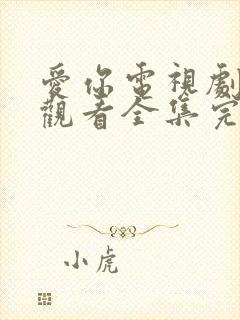 愛你電視劇
觀看全集完
小虎